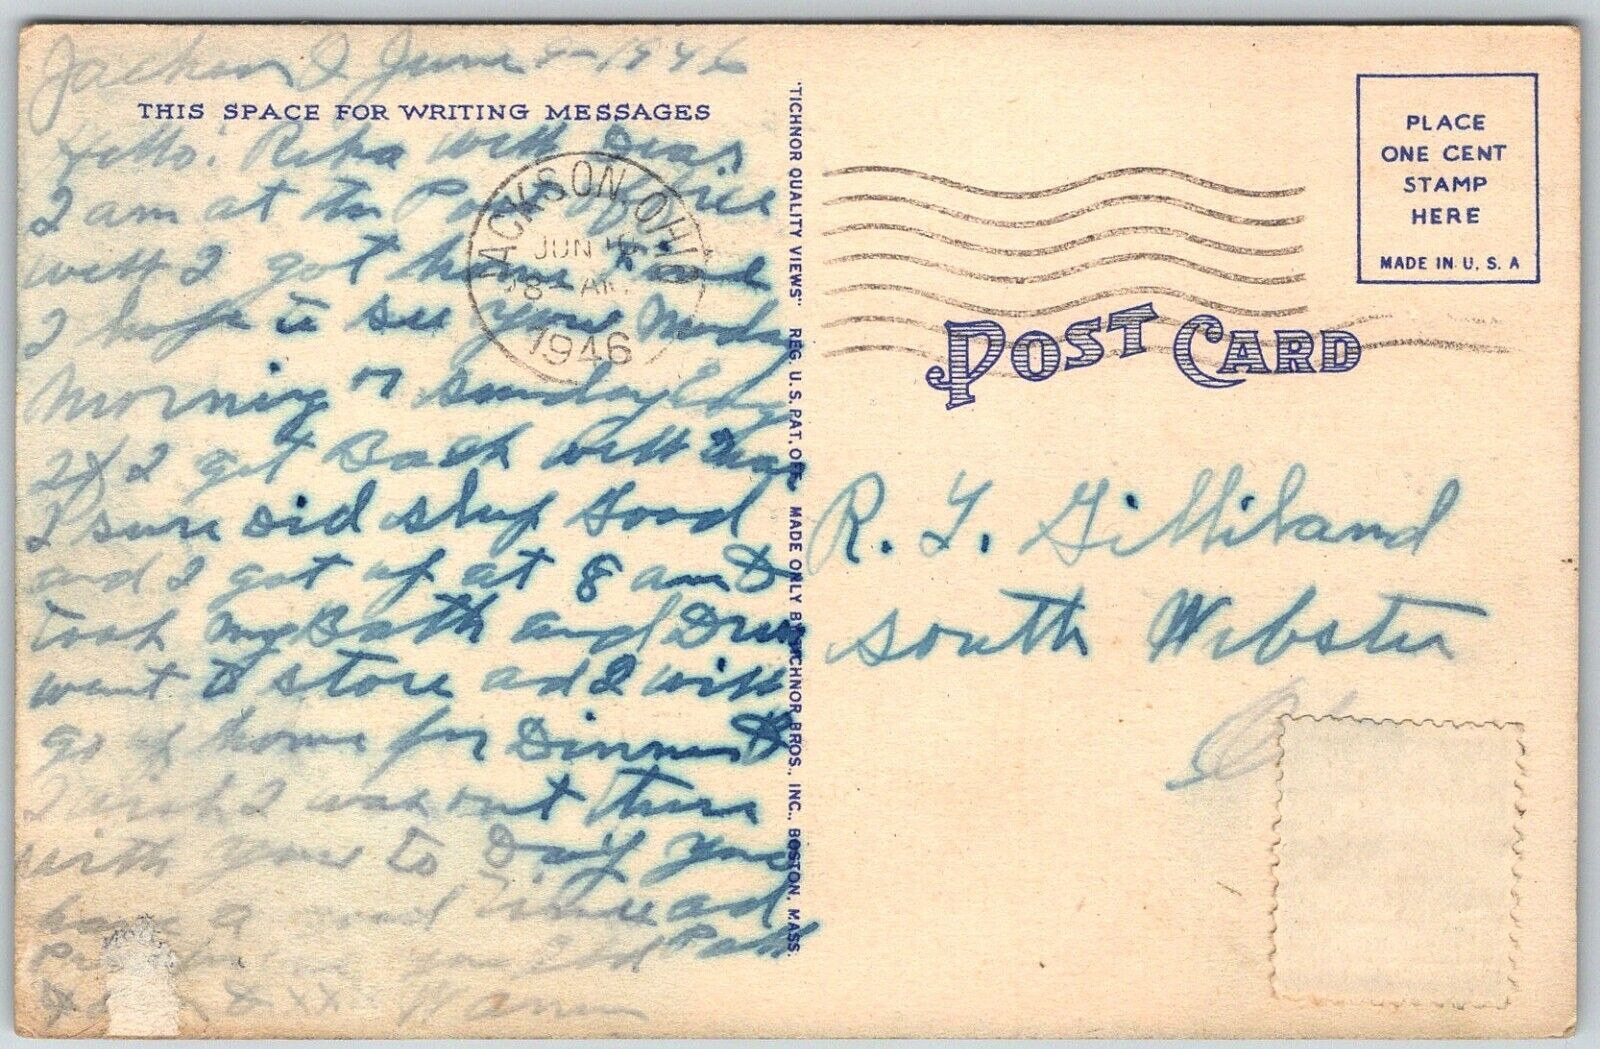 June 9-1946
THIS SPACE FOR WRITING MESSAGES
Hello. with Dear
I am at the Post office
well I got home and
I hope to see you Monday
Morning or Sunday
I get Back well Dear
I sure did sleep Good
and I got up at 8 am &
took my Bath and
want to store ad I will
go up home for Dinner &
I wish I was out there
with you to Day you
have a Good time ad
you old Pall
Warren
JACKSON. OHIO
JUN 10
8 AM
1946
"TICHNOR QUALITY VIEWS" REG. U. S. PAT. OFF. MADE ONLY BY TICHNOR BROS., INC., BOSTON, MASS.
PLACE
ONE CENT
STAMP
HERE
MADE IN U. S. A
POST CARD
R. T. Gilliland
South Webster